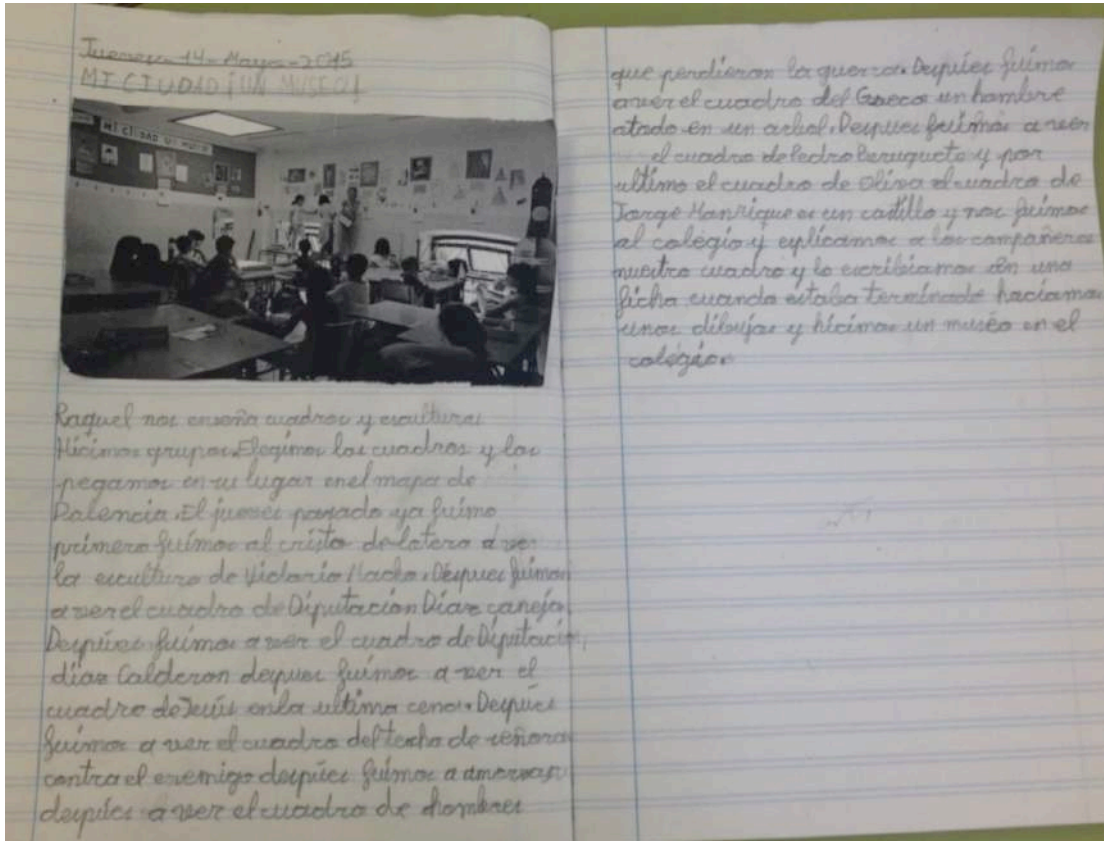 Jueves-14-Mayo-2015
MI CIUDAD ¡UN MUSEO!
MI CIUDAD UN MUSEO
Raquel nos enseña cuadros y esculturas
Hicimos grupos. Elegimos los cuadros y los
pegamos en su lugar enel mapa de
Palencia. El jueves pasado ya fuimo
primero fuímos al cristo delotero a ver
la escultura de Victorio Macho. Despues fuimos
a ver el cuadro de Diputación Díaz canejo.
Despúes fuímos a ver el cuadro de Diputación,
díaz Calderon despues fuímos a ver el
cuadro de Jesús enla ultima cena. Despúes
fuimos a ver el cuadro del techo de señoras
contra el enemigo despúes fuímos a
despúes a ver el cuadro de hombres
que perdieron la guerra. Despúes fuímos
a ver el cuadro del Greco un hombre
atado en un arbol. Despues fuímos a ver
el cuadro de Pedro Beruguete y por
ultimo el cuadro de Oliva el cuadro de
Jorge Manrique es un castillo y nos fuimos
al colegio y explicamos a los compañeros
nuestro cuadro y lo escribiamos en una
ficha cuando estaba terminado hacíamos
unos dibujos y hícimos un muséo en el
colégio.